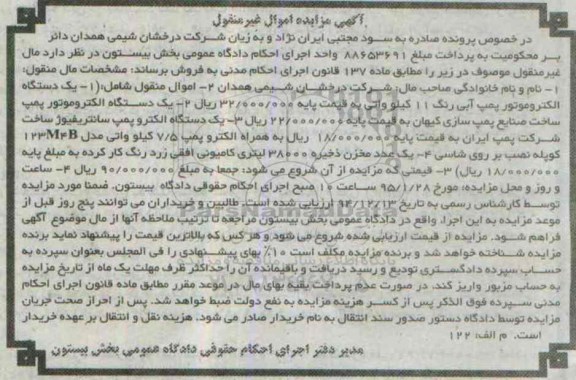 آگهی مزایده اموال غیرمنقول
در خصوص پرونده صادره به سود مجتبی ایران نژاد و به زیان شرکت درخشان شیمی همدان دائر
بر محکومیت به پرداخت مبلغ ۸۸۶۵۳۶۹۱ واحد اجرای احکام دادگاه عمومی بخش بیستون در نظر دارد مال
غیرمنقول موصوف در زیر را مطابق ماده ۱۳۷ قانون اجرای احکام مدنی به فروش برساند: مشخصات مال منقول:
۱- نام و نام خانوادگی صاحب مال: شرکت درخشان شیمی همدان ۲- اموال منقول شامل:(۱- یک دستگاه
الکتروموتور پمپ آبی رنگ ۱۱ کیلو واتی به قیمت پایه ۳۲/۰۰۰/۰۰۰ ریال ۲- یک دستگاه الکتروموتور پمپ
ساخت صنایع پمپ سازی کیهان به قیمت پایه ۲۲/۰۰۰/۰۰۰ ریال ۳- یک دستگاه الکترو پمپ سانتریفیوژ ساخت
شرکت پمپ ایران به قیمت پایه ۱۸/۰۰۰/۰۰۰ ریال به همراه الکترو پمپ ۷/۵ کیلو واتی مدل 123M4B
کوپله نصب بر روی شاسی ۴- یک عدد مخزن ذخیره ۳۸۰۰۰ لیتری کامیونی افقی زرد رنگ کار کرده به مبلغ پایه
۱۸/۰۰۰/۰۰۰ ریال) ۳- قیمتی که مزایده از آن شروع می شود: جمعا به مبلغ ۹۰/۰۰۰/۰۰۰ ریال ۴- ساعت
و روز و محل مزایده: مورخ ۹۵/۱/۲۸ ساعت ۱۰ صبح اجرای احکام حقوقی دادگاه بیستون. ضمنا مورد مزایده
توسط کارشناس رسمی به تاریخ ۹۴/۱۲/۱۳ ارزیابی شده است. طالبین و خریداران می توانند پنج روز قبل از
موعد مزایده به این اجرا، واقع در دادگاه عمومی بخش بیستون مراجعه تا ترتیب ملاحظه آنها از مال موضوع آگهی
فراهم شود. مزایده از قیمت ارزیابی شده شروع می شود و هر کس که بالاترین قیمت را پیشنهاد نماید برنده
مزایده شناخته خواهد شد و برنده مزایده مکلف است ۱۰٪ بهای پیشنهادی را فی المجلس بعنوان سپرده به
حساب سپرده دادگستری تودیع و رسید دریافت و باقیمانده آن را حداکثر ظرف مهلت یک ماه از تاریخ مزایده
به حساب مزبور واریز کند. در صورت عدم پرداخت بقیه بهای مال در موعد مقرر مطابق ماده قانون اجرای احکام
مدنی سپرده فوق الذکر پس از کسر هزینه مزایده به نفع دولت ضبط خواهد شد. پس از احراز صحت جریان
مزایده توسط دادگاه دستور صدور سند انتقال به نام خریدار صادر می شود. هزینه نقل و انتقال بر عهده خریدار
است. م الف: ۱۲۲
مدیر دفتر اجرای احکام حقوقی دادگاه عمومی بخش بیستون